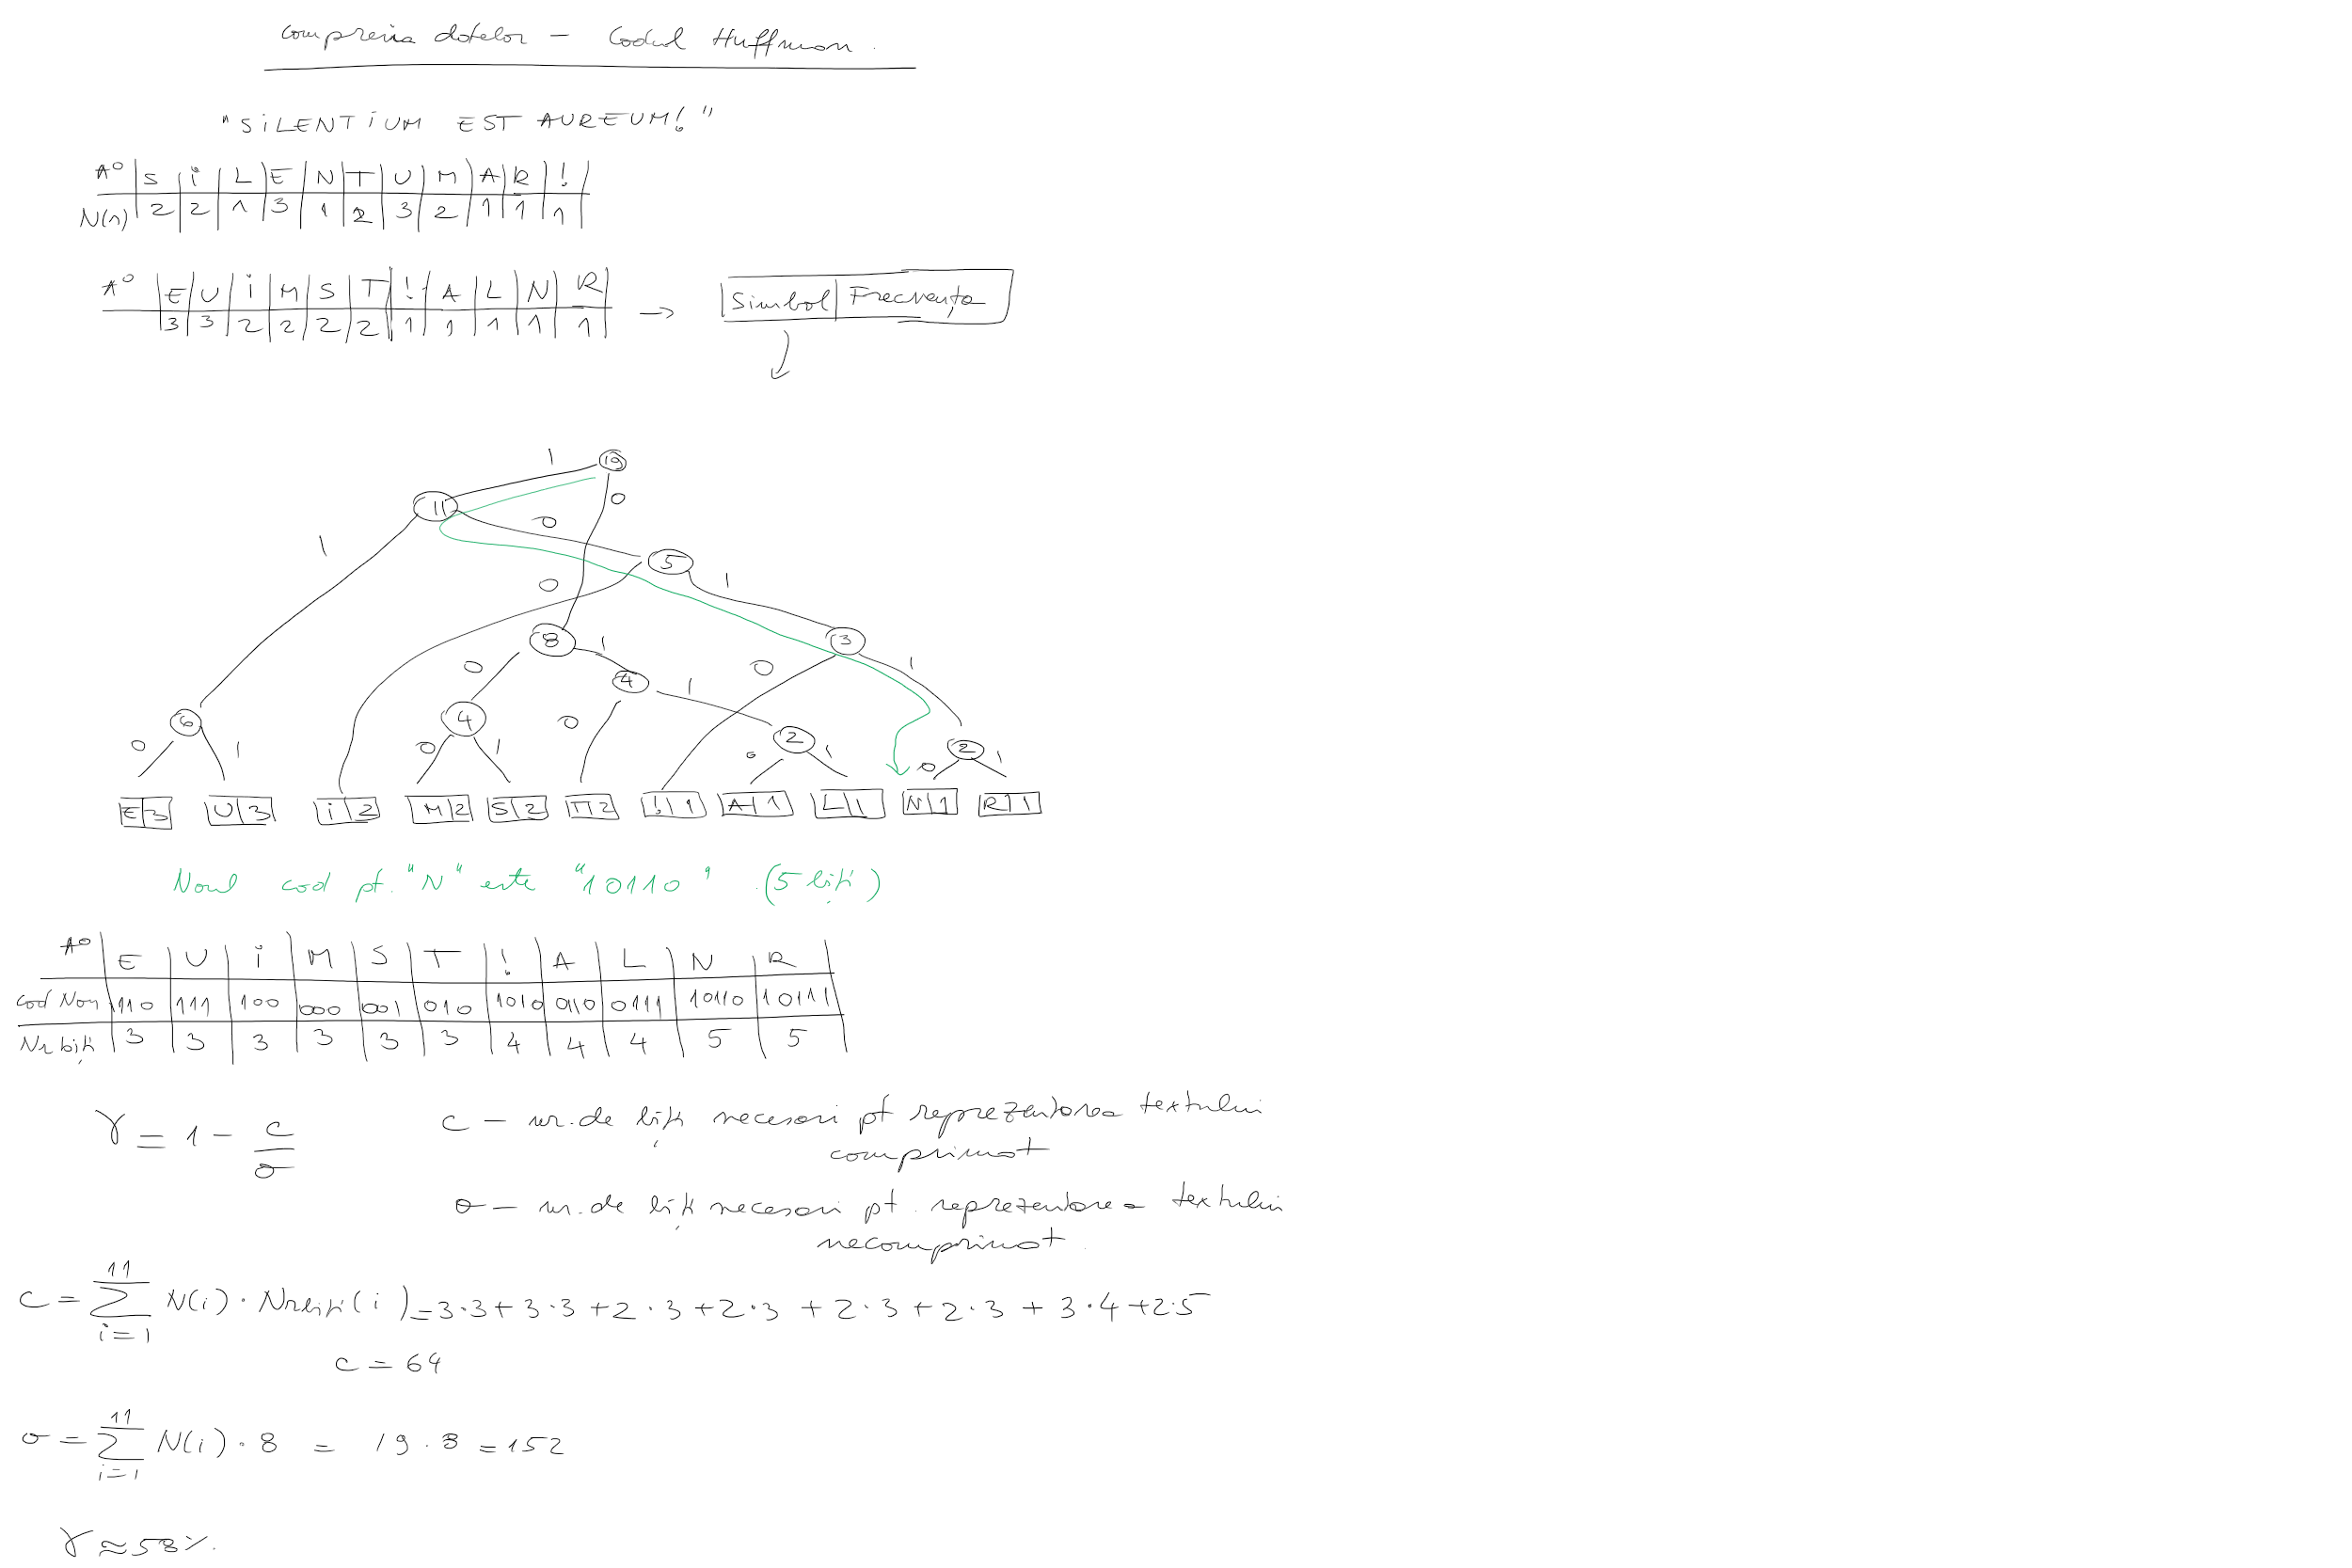 Compresia datelor – Codul Huffman.
"SiLENTiUM EST AUREUM!"
A° S i L E N T U M A R !
N(n) 2 2 1 3 1 2 3 2 1 1 1
A° E U i M S T ! A L N R → Simbol Frecvența
3 3 2 2 2 2 1 1 1 1 1
1 19
11 0
0
1 5
0 1
8 1 3
0 4 1 0 1
6 4 0 2 2
0 1 0 1 0 1 0 1
E 3 U 3 i 2 M 2 S 2 T 2 ! 1 A 1 L 1 N 1 R 1
Noul cod pt. "N" este "10110" (5 biți)
A° E U i M S T ! A L N R
Cod Nou 110 111 100 000 001 010 1010 0110 0111 10110 10111
Nr biți 3 3 3 3 3 3 4 4 4 5 5
γ = 1 - c/o
c – nr. de biți necesari pt reprezentarea textului
comprimat
o – nr. de biți necesari pt. reprezentarea textului
necomprimat.
c = 11 Σ i=1 N(i) · Nrbiți(i) = 3·3 + 3·3 + 2·3 + 2·3 + 2·3 + 2·3 + 3·4 + 2·5
c = 64
o = 11 Σ i=1 N(i) · 8 = 19 · 8 = 152
γ ≈ 58%.